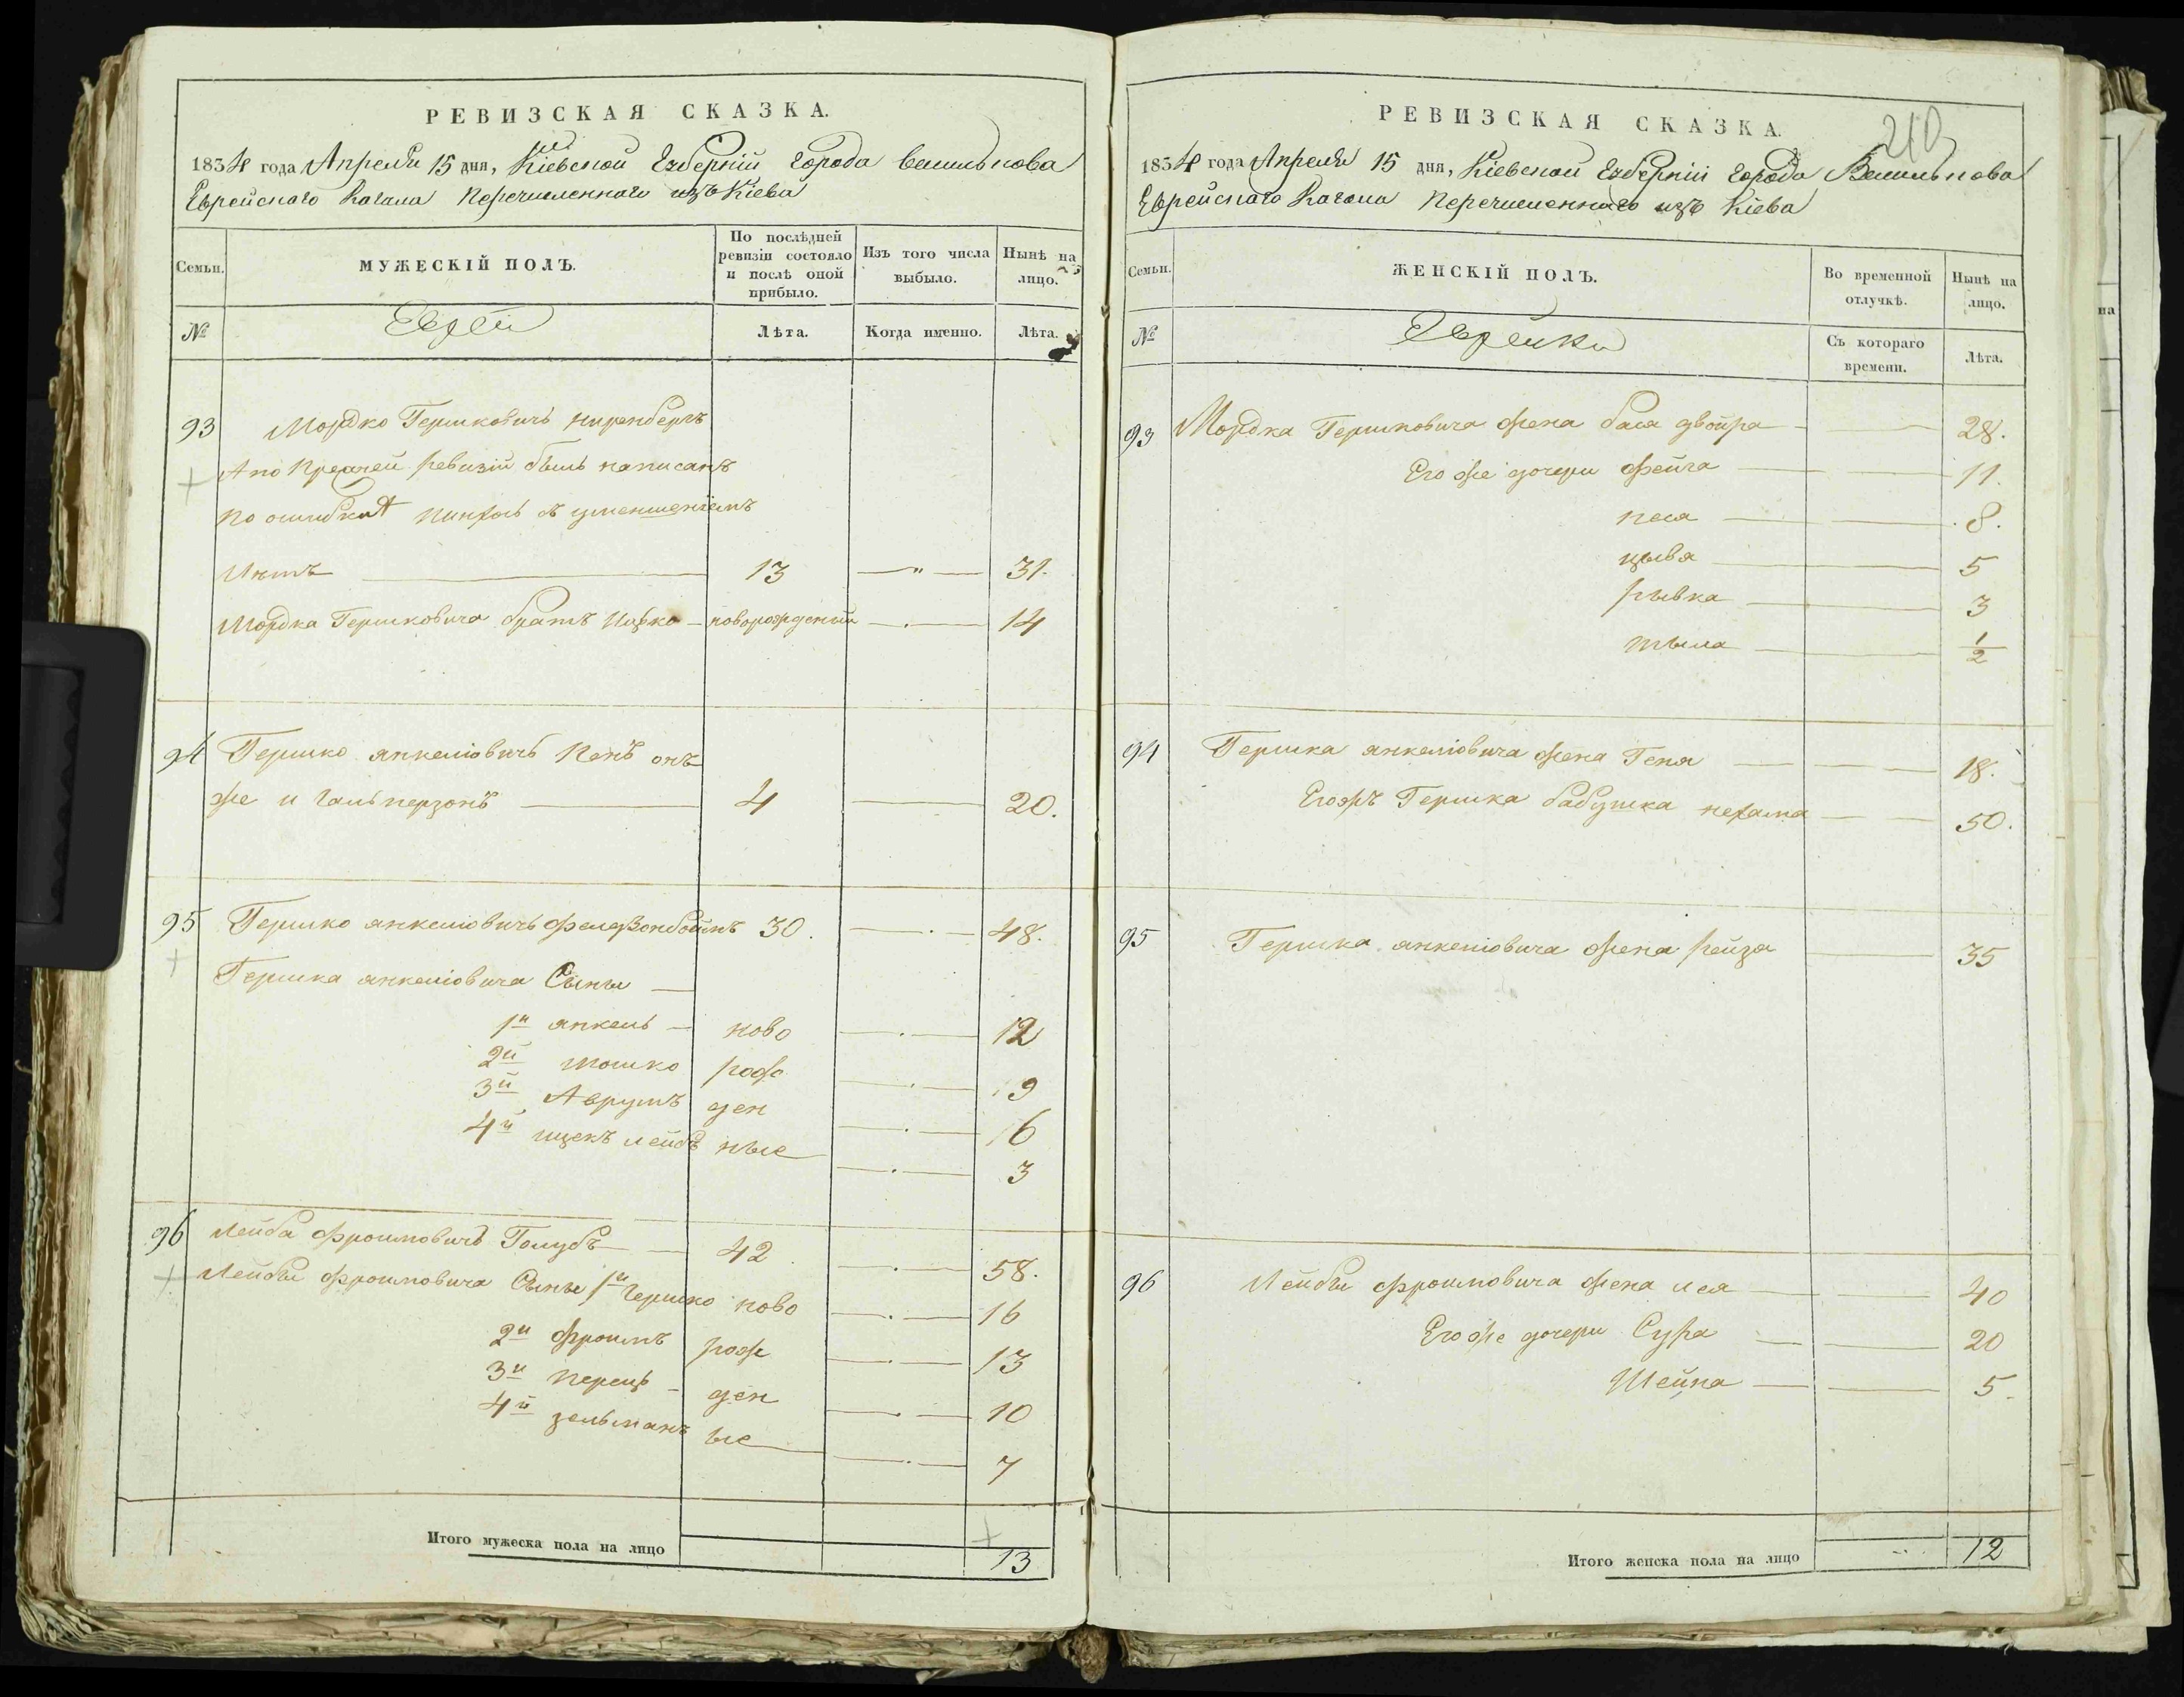 РЕВИЗСКАЯ СКАЗКА.
1834 года Апреля 15 дня, Кіевской Губерніи города Василькова
Еврейского Кагала перечисленного изъ Кіева
Семьи.
МУЖЕСКІЙ ПОЛЪ.
По послѣдней ревизіи состояло и послѣ оной прибыло.
Изъ того числа выбыло.
Нынѣ на лицо.
№
Евреи
Лѣта.
Когда именно.
Лѣта.
93 Мордко Гершковичъ Ниренбергъ
А по ревизіи былъ написанъ
по ошибки съ уменшеніемъ
лѣтъ 13 — " — 31.
Мордка Гершковича братъ Ицко — новорожденый — . — 14
94 Гершко Янкеліовичъ Кенъ онъ
же и Гальперзонъ — 4 — 20.
95 Гершко Янкеліовичъ 30. — . — 48.
Гершка Янкеліовича Сыны —
1й Янкель — ново — . — 12
2й Мошко рож — . — 9
3й Аврумъ ден — . — 6
4й Ицекъ Лейбъ ные — . — 3
96 Лейба Фроимовичъ Голубъ — 42. — . — 58.
Лейбы Фроимовича Сыны 1й Гершко ново — . — 16
2й Фроимъ рож — . — 13
3й Перецъ — ден — . — 10
4й Зельманъ ые — . — 7
Итого мужеска пола на лицо 13
210
РЕВИЗСКАЯ СКАЗКА.
1834 года Апреля 15 дня, Кіевской Губерніи города Василькова
Еврейского Кагала перечисленного изъ Кіева
Семьи.
ЖЕНСКІЙ ПОЛЪ.
Во временной отлучкѣ.
Нынѣ на лицо.
№
Еврейки
Съ котораго времени.
Лѣта.
93 Мордка Гершковича жена Бася Двойра — 28.
Его же дочери Фейга — 11.
Песя — 8.
Цывя — 5
Рывка — 3
— 1/2
94 Гершка Янкеліовича жена Геня — 18.
Егожъ Гершка бабушка Нехама — 50.
95 Гершка Янкеліовича жена Рейза — 35
96 Лейбы Фроимовича жена Лея — 40
Его же дочери Сура — 20
Шейна — 5.
Итого женска пола на лицо 12